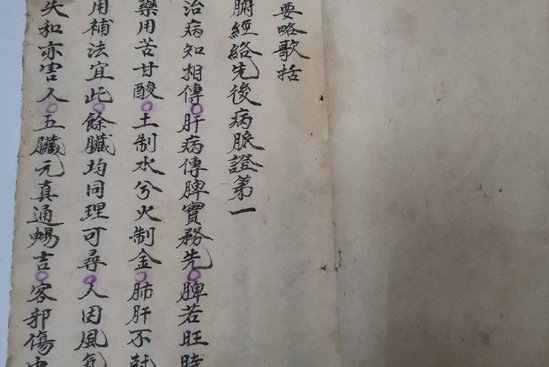 要略歌括
腑經絡先後病脈證第一
治病知相傳肝病傳脾實務先脾若旺時
藥用苦甘酸土制水兮火制金肺肝不
用補法宜此餘臟均同理可尋人因風氣
失和亦害人五臟元真通暢吉客邪傷